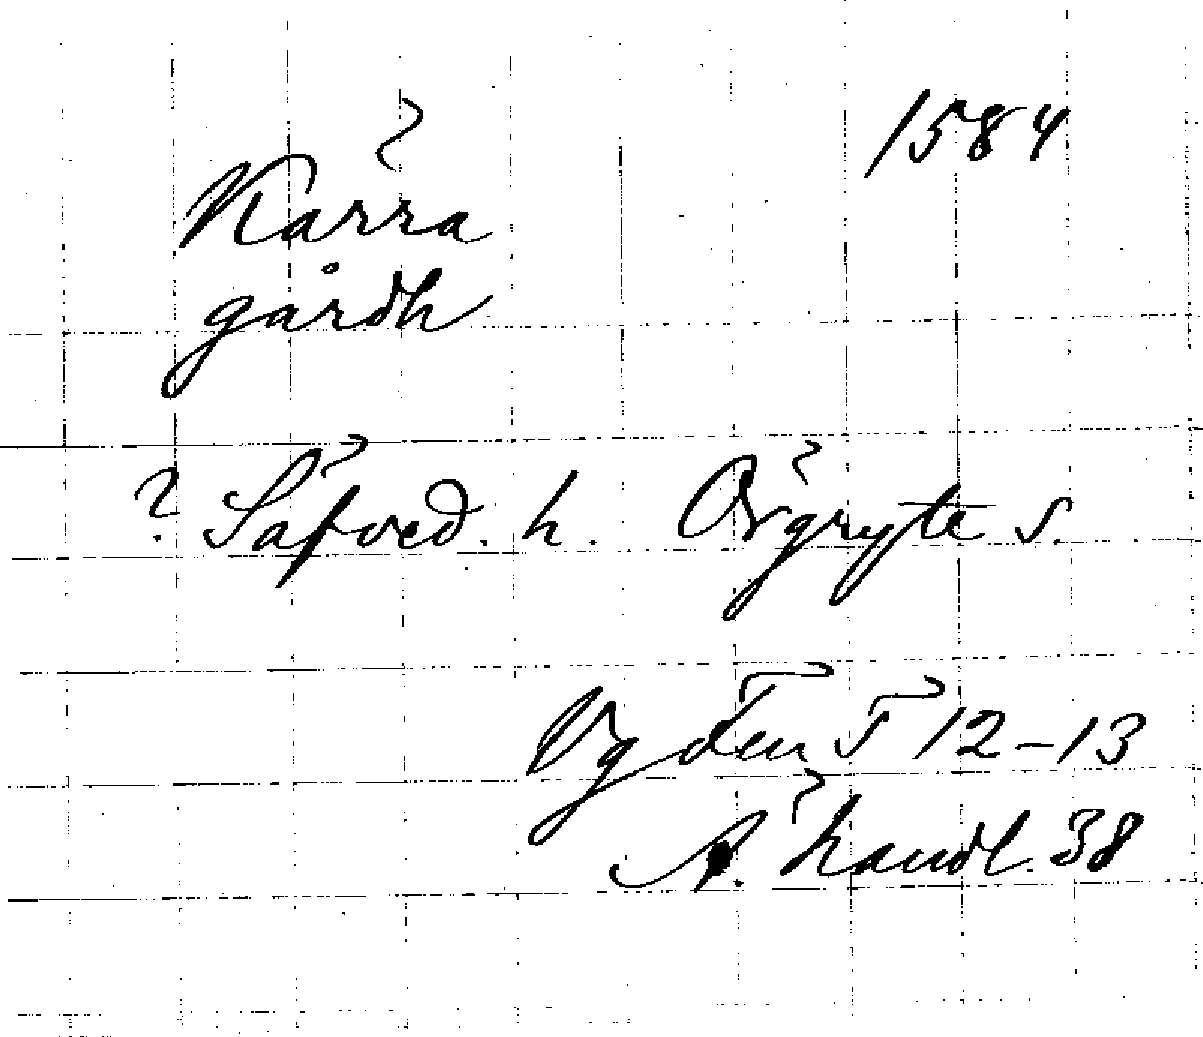 1584
Kärra
gårdh
? Säfved. h. Örgryte s.
Vg den 5 12-13
Ä. handl. 38